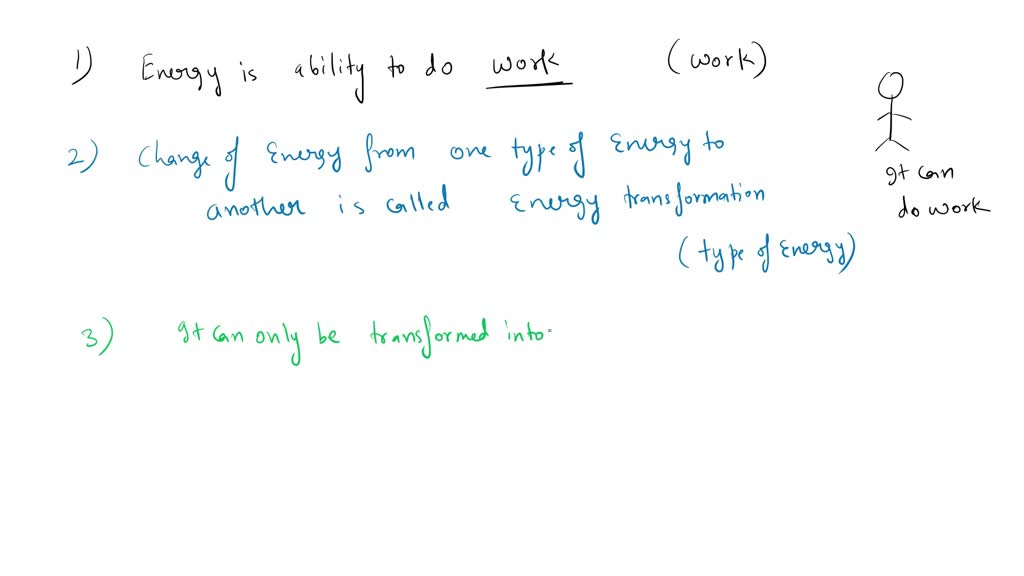 1) Energy is ability to do work (work)
2) Change of Energy from one type of Energy to
another is called Energy transformation
(type of Energy)
It can
do work
3) It can only be transformed into